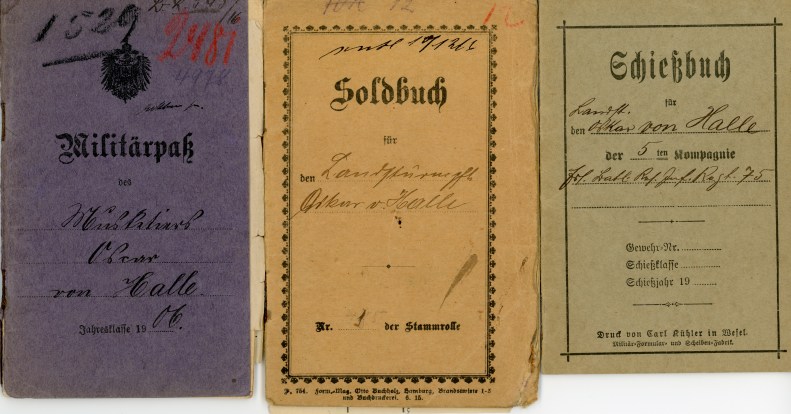 1529
2481
Militärpaß
des
Musketiers
Oscar
von Halle.
Jahresklasse 19 06.
12
Soldbuch
für
den Landsturmpfl.
Oskar v. Halle
Nr. der Stammrolle
F. 754. Form.-Mag. Otto Buchholz, Hamburg, Brandstwiete 1-3
und Buchdruckerei. 6. 15.
Schießbuch
für
Landst.
den Oskar von Halle
der 5 ten Kompagnie
Ers. Batl. Res. Inf. Regt. 75
Gewehr-Nr.
Schießklasse
Schießjahr 19
Druck von Carl Kühler in Wesel.
Militär-Formular- und Scheiben-Fabrik.